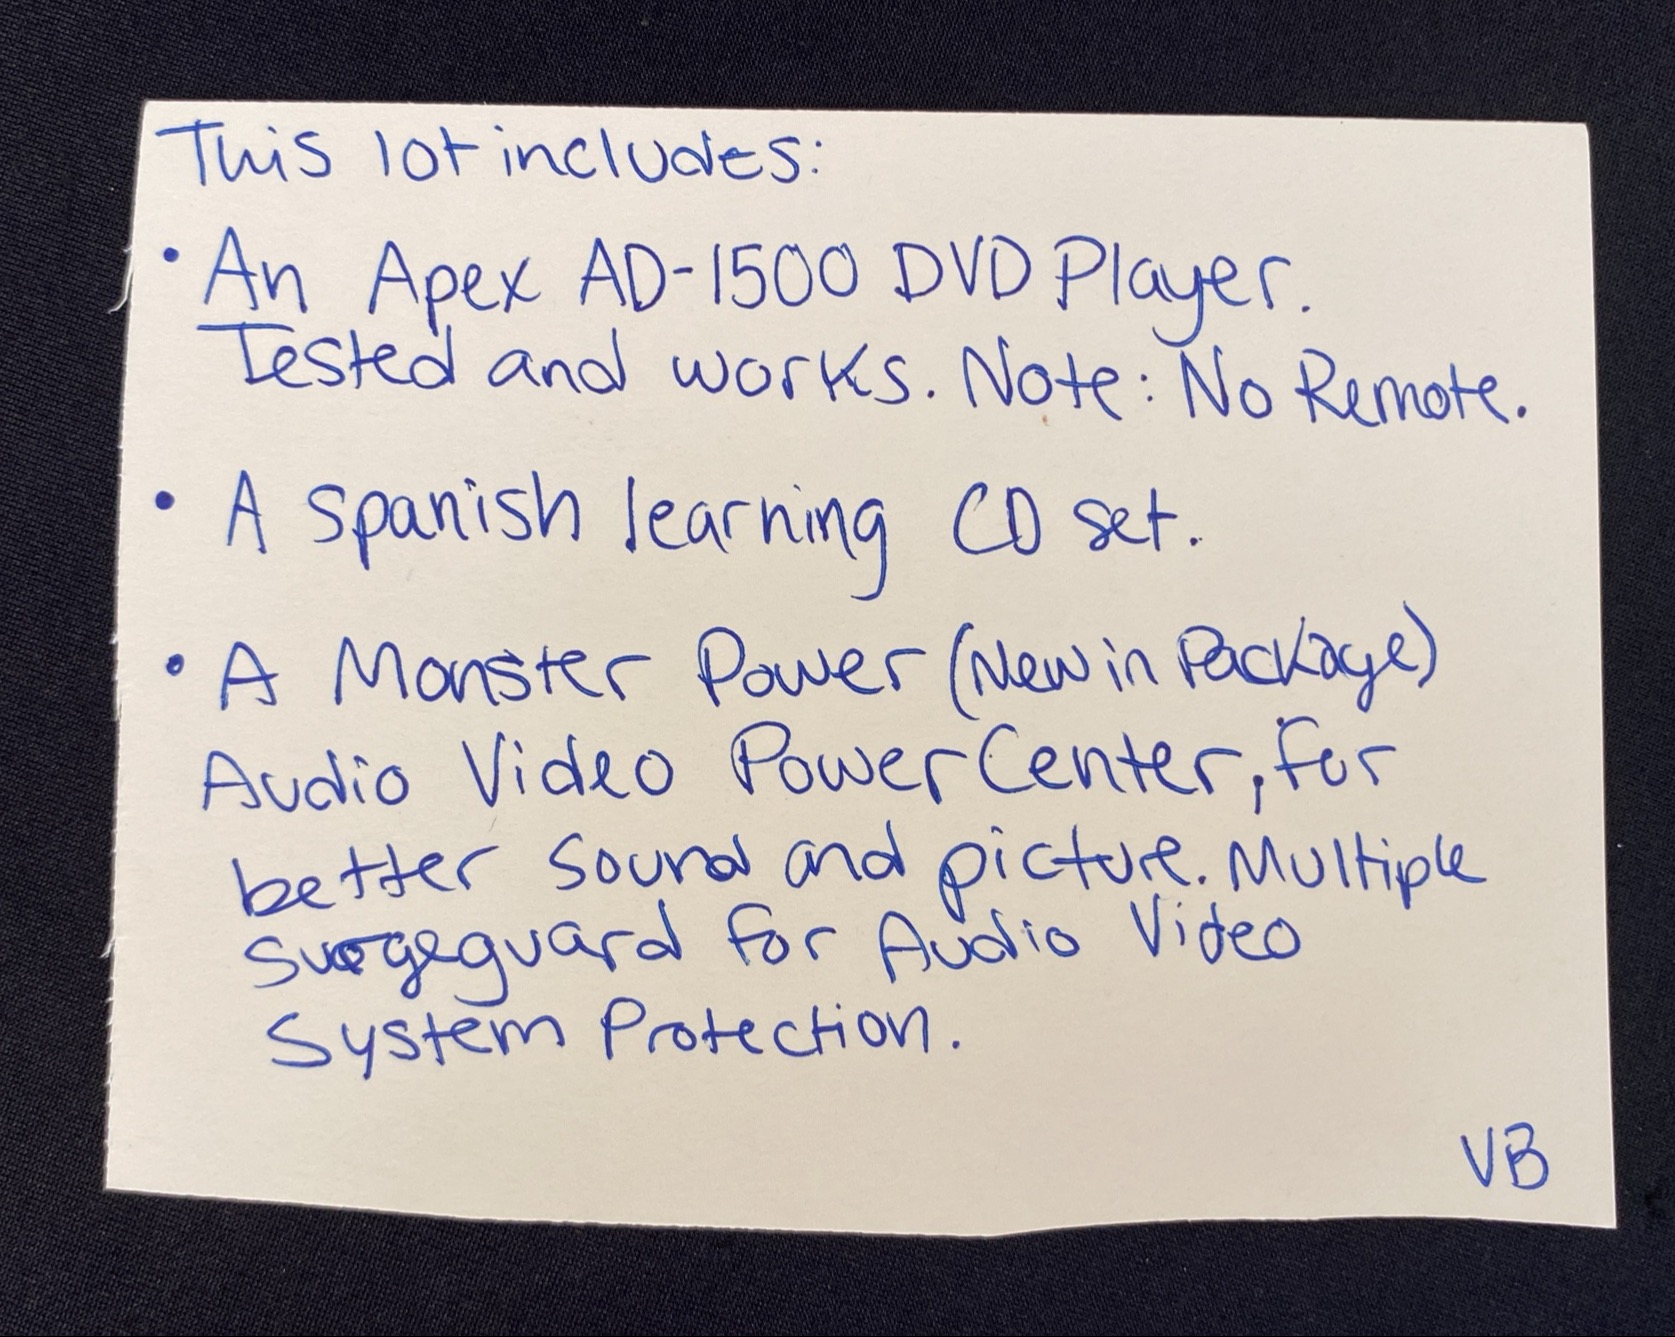 This lot includes:
• An Apex AD-1500 DVD Player.
Tested and works. Note: No Remote.
• A Spanish learning CD set.
• A Monster Power (New in Package)
Audio Video PowerCenter, for
better sound and picture. Multiple
surgeguard for Audio Video
System Protection.
VB